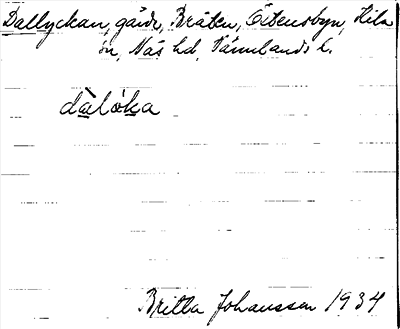 Dallyckan, gärde, Bråten, Östensbyn, Kila
sn, Näs hd, Värmlands l.
dàlöka
Britta Johansson 1934